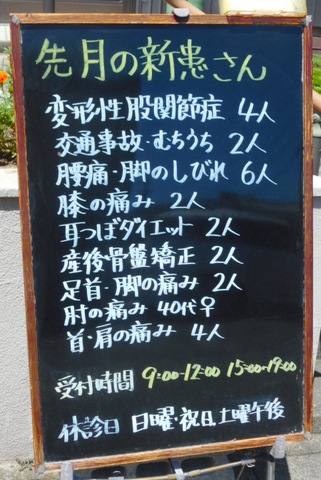 先月の新患さん
変形性股関節症 4人
交通事故・むちうち 2人
腰痛・脚のしびれ 6人
膝の痛み 2人
耳つぼダイエット 2人
産後骨盤矯正 2人
足首・脚の痛み 2人
肘の痛み 40代♀
首・肩の痛み 4人
受付時間 9:00-12:00 15:00-19:00
休診日 日曜・祝日、土曜午後